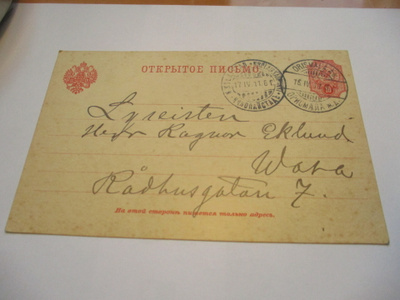 ОТКРЫТОЕ ПИСЬМО.
Lyceisten
Herr Ragnar Eklund
Wasa
Rådhusgatan 7.
На этой сторонѣ пишется только адресъ.